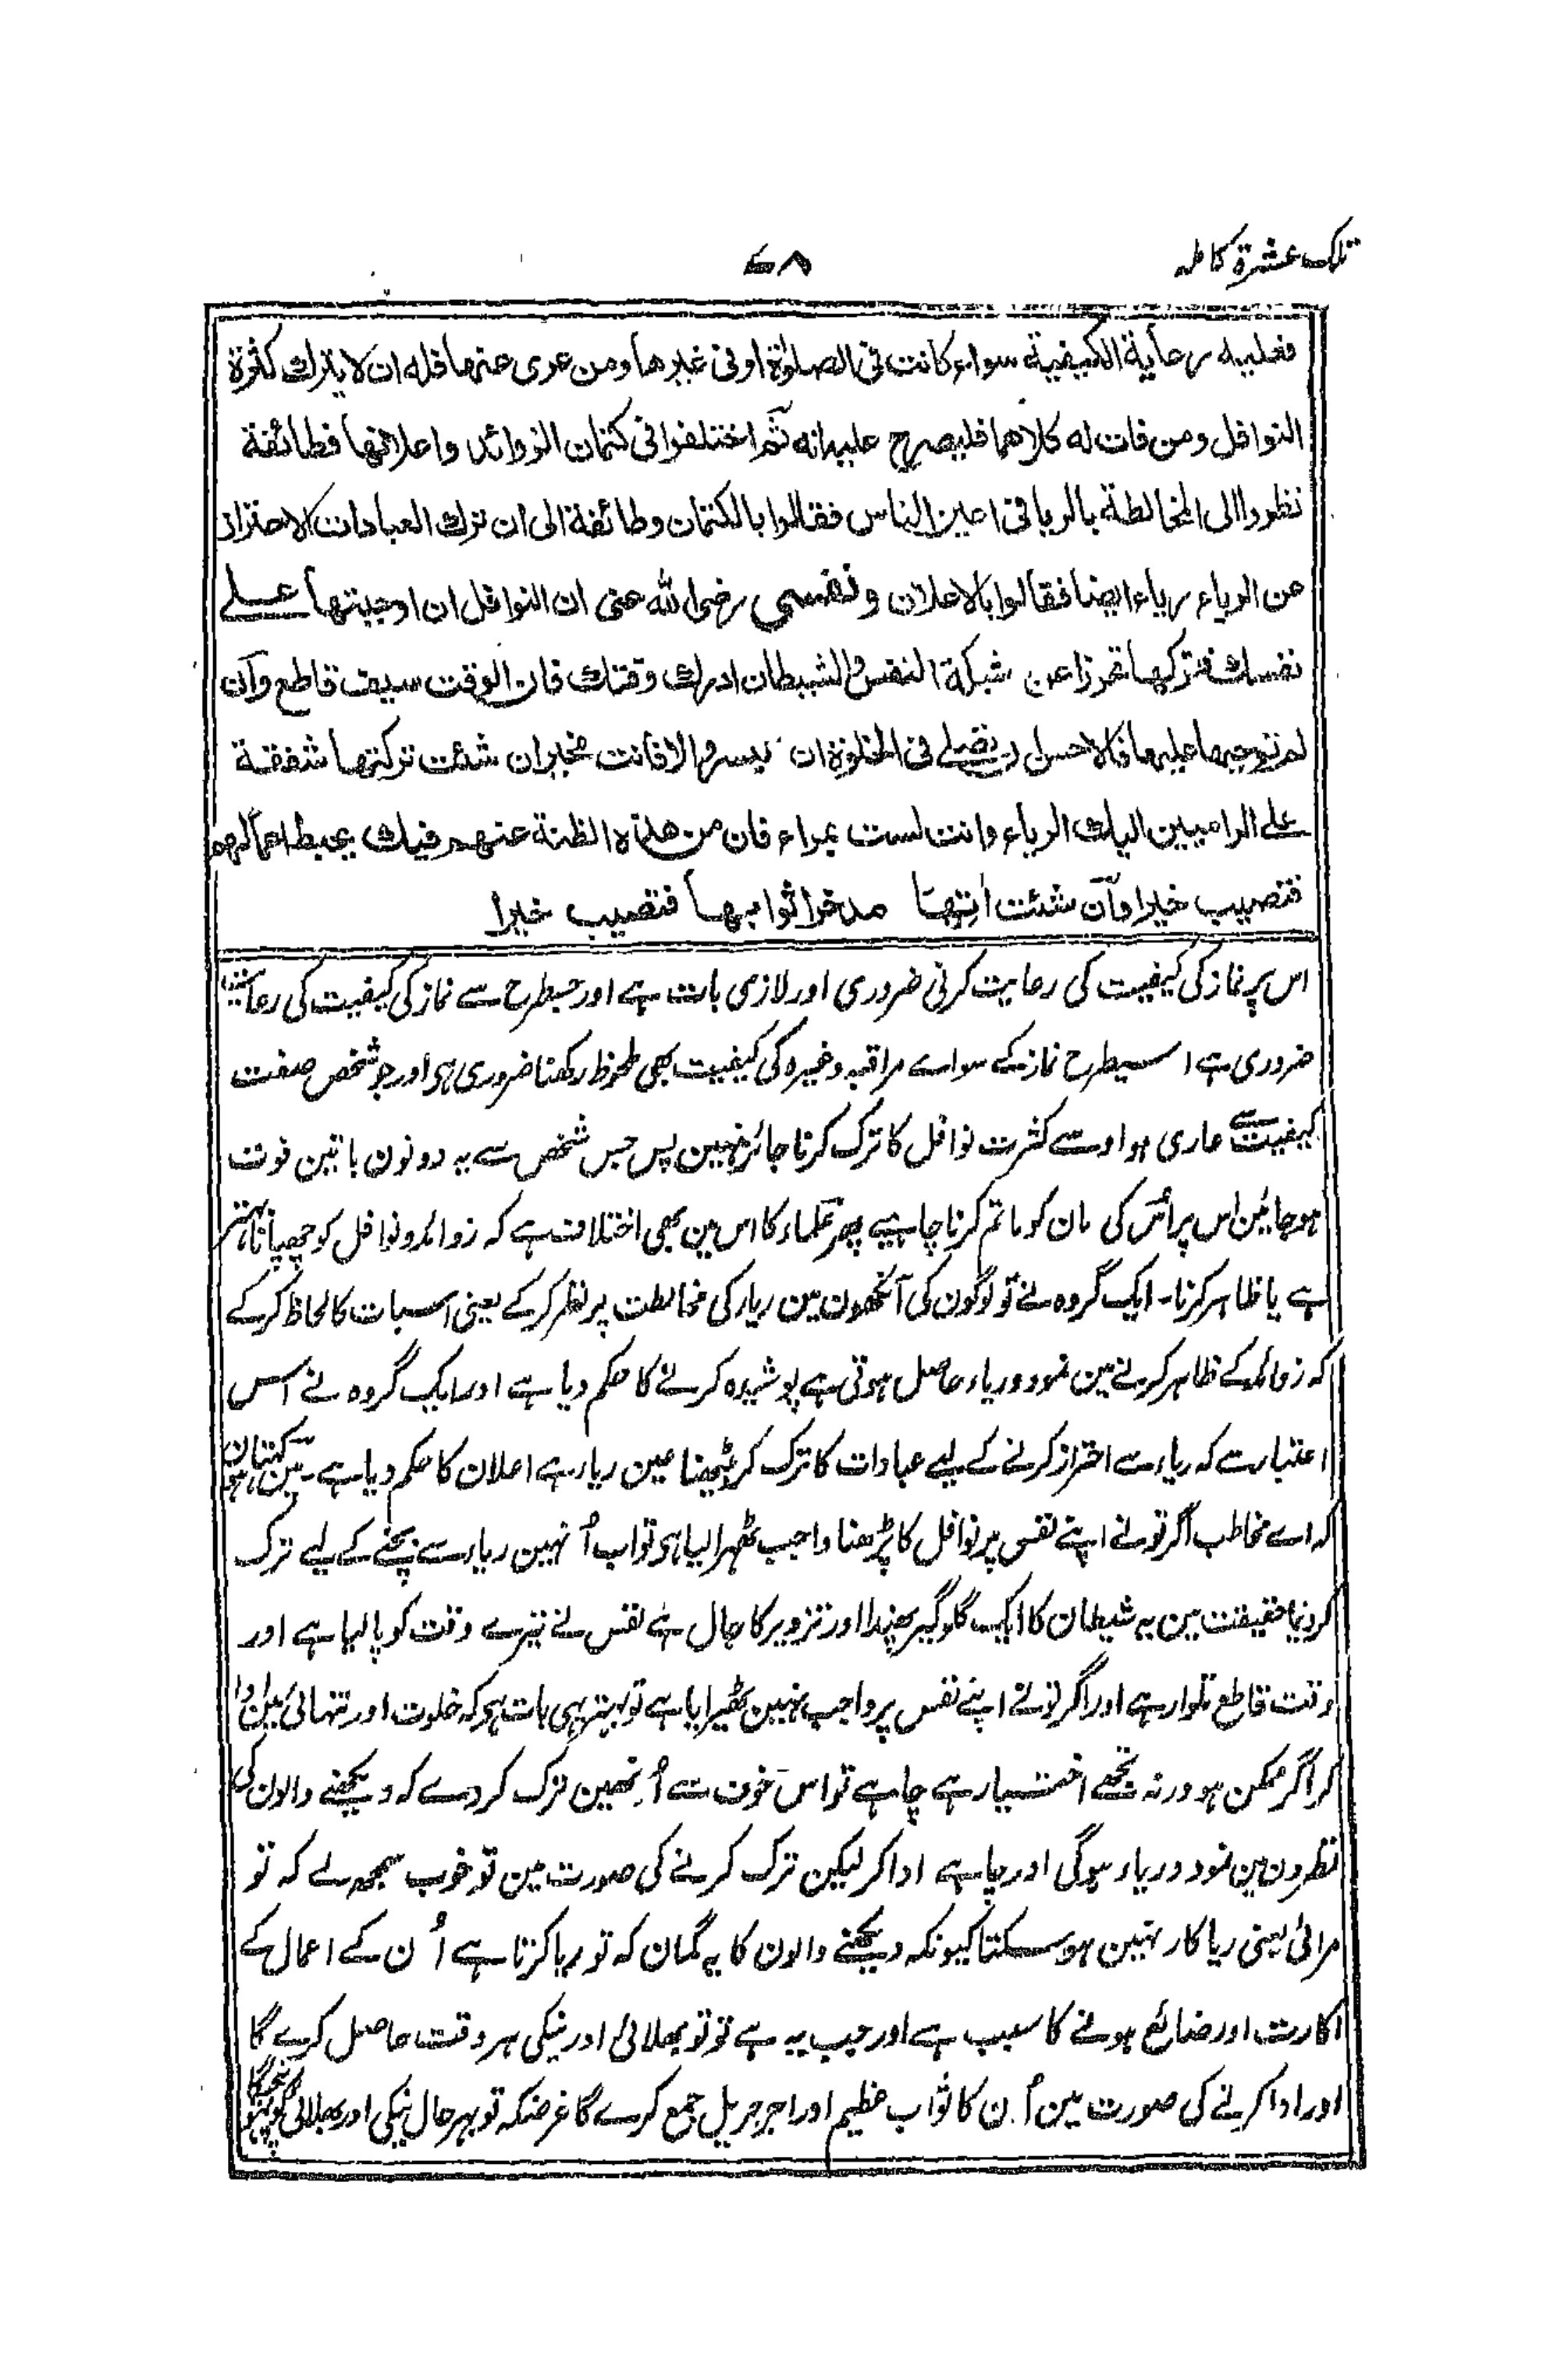 تلک عشرۃ کاملہ
۷۸
فعلیہ رعایة الکیفیة سواء کانت فی الصلوٰة او فی غیرها ومن عری عنها فله ان لا یترك کثرة
النوافل ومن فات له کلاهما فلیصرح علیه انه ثم اختلفوا فی کتمان الزوائد واعلانها فطائفة
نظروا الی المخالطة بالریا فی اعین الناس فقالوا بالکتمان وطائفة الی ان ترك العبادات لاحتراز
عن الریاء ریاء ایضا فقالوا بالاعلان ونفسی رضی الله عنی ان النوافل ان اوجبتها علے
نفسك فترکها تحرزا عن شبکة النفس والشیطان ادرك وقتك فان الوقت سیف قاطع وان
لم توجبها علیها فالاحسن ان تصلے فی الخلوة ان یسر والا فانت مخیر ان شئت ترکتها شفقة
علے الرامیین الیك الریاء وانت لست بمراء فان من هذہ الظنة عنهم فیك یحبط اعمالهم
فتصیب خیرا وان شئت اتیتها مدخرا ثوابها فتصیب خیرا
اس پر نماز کی کیفیت کی رعایت کرنی ضروری اور لازمی بات ہے اور جسطرح سے نماز کی کیفیت کی رعایت
ضروری ہے اسیطرح نماز کے سواے مراقبہ وغیرہ کی کیفیت بھی ملحوظ رکھنا ضروری ہی اور جو شخص صفت
کیفیت سے عاری ہو اوسے کثرت نوافل کا ترک کرنا جائز نہین پس جس شخص سے یہ دونون باتین فوت
ہوجائین اس پر اُس کی مان کو ماتم کرنا چاہیے پھر علماء کا اس مین بھی اختلاف ہے کہ زوائد و نوافل کو چھپانا بہتر
ہے یا ظاہر کرنا۔ ایک گروہ نے تو لوگون کی آنکھون مین ریار کی مخالطت پر نظر کرکے یعنی اسبات کا لحاظ کرکے
کہ زوائد کے ظاہر کرنے مین نمود و ریاء حاصل ہوتی ہے پوشیدہ کرنے کا حکم دیا ہے اور ایک گروہ نے اس
اعتبار سے کہ ریاء سے احتراز کرنے کے لیے عبادات کا ترک کر بیٹھنا عین ریار ہے اعلان کا حکم دیا ہے۔ مین کہتا ہون
کہ اے مخاطب اگر تو نے اپنے نفس پر نوافل کا پڑھنا واجب ٹھہرا لیا ہی تو اب اُنہین ریار سے بچنے کے لیے ترک
کر دینا حقیقت مین یہ شیطان کا ایک گلوگیر پھندا اور تزویر کا جال ہے نفس نے تیرے وقت کو پا لیا ہے اور
وقت قاطع تلوار ہے اور اگر تو نے اپنے نفس پر واجب نہین ٹھیرایا ہے تو بہتر یہی بات ہی کہ خلوت اور تنہائی مین ادا
کر اگر ممکن ہو ورنہ تجھے اختیار ہے چاہے تو اس خوف سے اُنھین ترک کر دے کہ دیکھنے والون کی
نظرون مین نمود و ریار ہوگی اور چاہے ادا کر لیکن ترک کرنے کی صورت مین تو خوب سمجھ لے کہ تو
مرائی یعنی ریا کار نہین ہو سکتا کیونکہ دیکھنے والون کا یہ گمان کہ تو ریا کرتا ہے اُن کے اعمال کے
اکارت اور ضائع ہونے کا سبب ہے اور جب یہ ہے تو تو بھلائی اور نیکی ہر وقت حاصل کرے گا
اور ادا کرنے کی صورت مین اُن کا ثواب عظیم اور اجر جزیل جمع کرے گا غرضکہ تو بہر حال نیکی اور بھلائی کو پہنچے گا